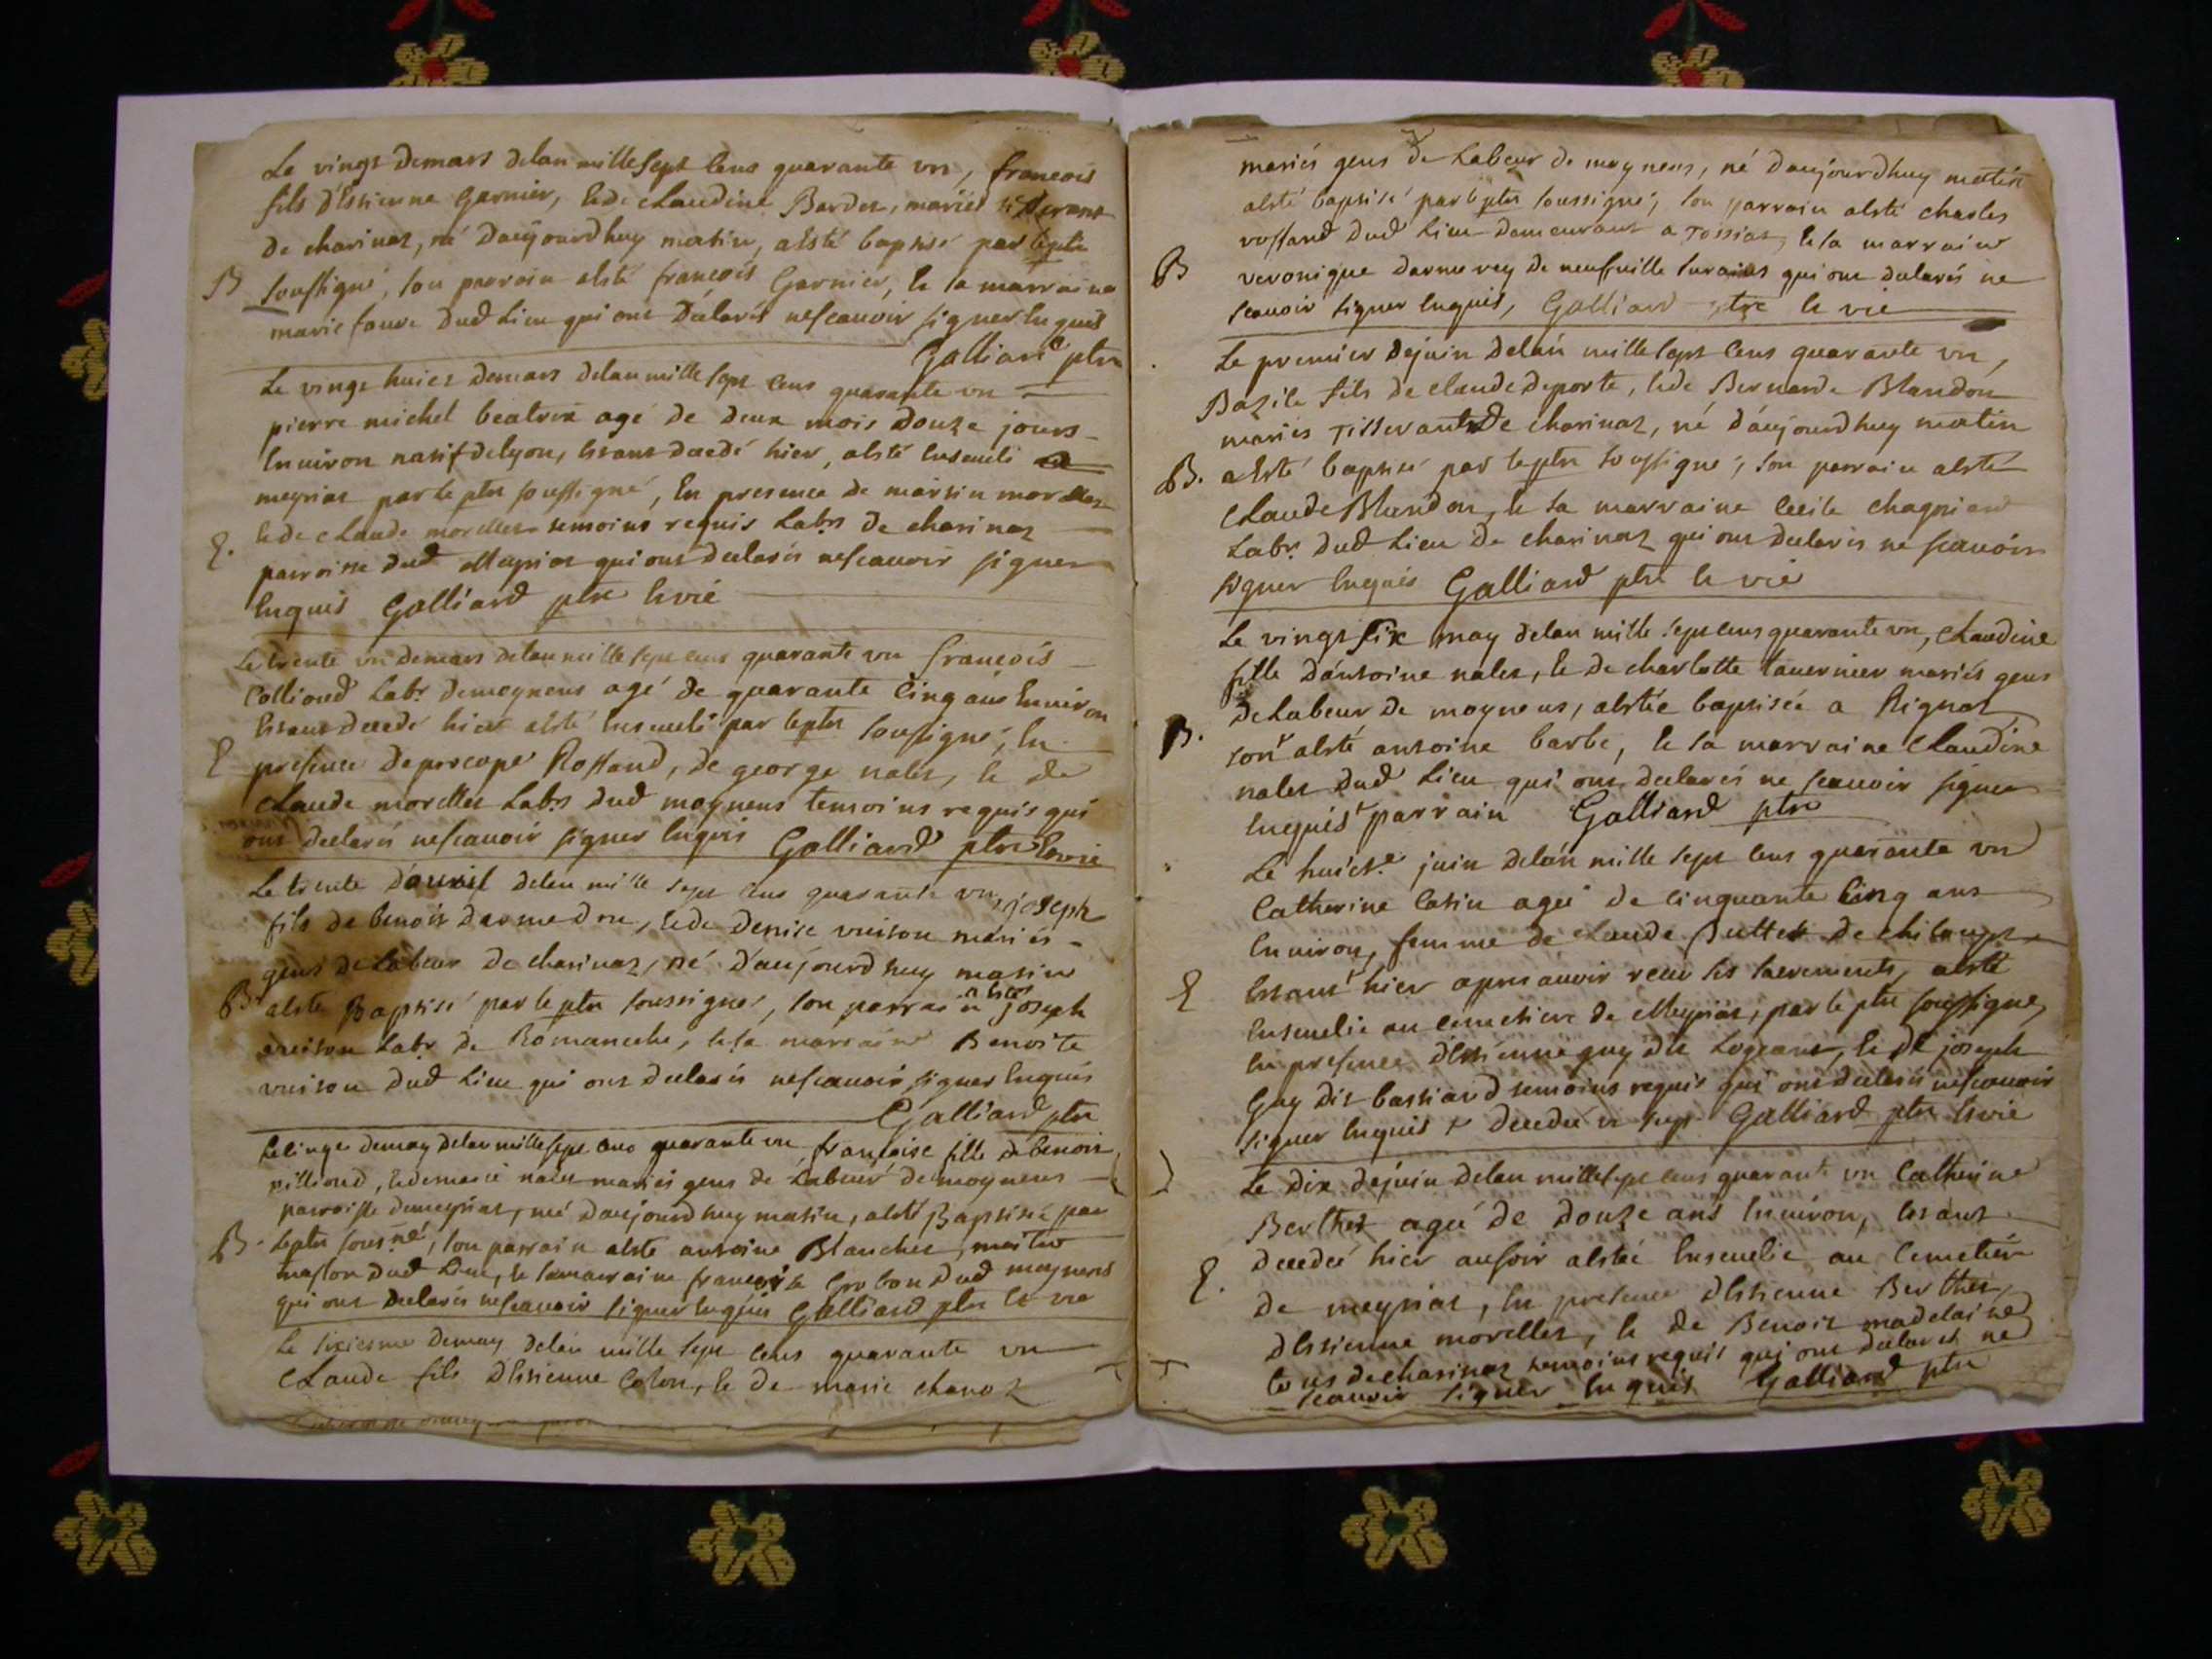 Le vingt demars delan mille sept cens quarante vn, francois
fils d'Estienne Garnier, & de claudine Bardet, mariés tisserans
de charinaz, né daujourdhuy matin, a esté baptisé par le ptre
B soussigné, son parrain a esté francois Garnier, & sa marraine
marie faure dud lieu qui ont déclarés ne scauoir signer enquis
Galliard ptre
Le vingt huict demars delan mille sept cens quarante vn
pierre michel beatrix agé de deux mois douze jours
enuiron natif de lyon, estant decedé hier, a esté enseueli a
meyriat par le ptre soussigné, en presence de martin morellet
E. & de claude morellet temoins requis Labrs de charinaz
parroisse dud Meyriat qui ont declarés ne scauoir signer
enquis Galliard ptre & vic
Le trente vn demars delan mille sept cens quarante vn francois
Collioud Labr demoynens agé de quarante cinq ans enuiron
estant decedé hier a esté enseueli par le ptre soussigné, en
E presence de porcope Rostand, de george nalet, & de
claude morellet Labrs dud moynens temoins requis qui
ont declarés ne scauoir signer enquis Galliard ptre & vic
Le trente d'auril delan mille sept cens quarante vn, joseph
fils de benoit darmedon, & de denise vuison mariés
gens de labeur de charinaz, né d'aujourdhuy matin
B. a esté Baptisé par le ptre soussigné, son parrain a esté joseph
vuison Labr de Romaneche, & sa marraine Benoite
vuison dud lieu qui ont declarés ne scauoir signer enquis
Galliard ptre
Le cinqe demay delan mille sept cens quarante vn, francoise fille de benoit
pillioud, & de marie nalet mariés gens de Labeur de moynens
parroisse de meyriat, née daujourdhuy matin, a esté Baptisée par
B. le ptre sousné, son parrain a esté antoine Blanchet maitre
masson dud lieu, & sa marraine francoise dud moynens
qui ont declarés ne scauoir signer enquis Galliard ptre & vic
Le sixiesme demay delan mille sept cens quarante vn
claude fils d'Estienne Colon, & de marie chanoz
mariés gens de Labeur de moynens, né daujourdhuy matin
a esté baptisé par le ptre soussigné, son parrain a esté charles
rostand dud lieu demeurant a Tossiat, & sa marraine
B veronique darmerey de neufuille surains qui ont declarés ne
scauoir signer enquis, Galliard ptre & vic
Le premier dejuin delan mille sept cens quarante vn,
Bazile fils de claude deporte, & de Bernarde Blandon
mariés Tisserants de charinaz, né d'aujourdhuy matin
B. a esté baptisé par le ptre soussigné, son parrain a esté
claude Blandon, & sa marraine cecile
Labrs dud lieu de charinaz qui ont declarés ne scauoir
signer enquis Galliard ptre & vic
Le vingt six may delan mille sept cens quarante vn, claudine
fille d'antoine nalet, & de charlotte tauernier mariés gens
deLabeur de moynens, a estée baptisée a Rignat
B. son a esté antoine barbe, & sa marraine claudine
nalet dud lieu qui ont declarés ne scauoir signer
enquis parrain Galliard ptre
Le huicte juin delan mille sept cens quarante vn
Catherine Catin agée de cinquante cinq ans
enuiron, femme de claude Buttet de
E estant hier apres auoir receu ses sacrements, a esté
enseuelie au cemetiere de Meyriat, par le ptre soussigné,
en presence d'Estienne guy dit Logeant, & de joseph
Guy dit bassiard temoins requis qui ont declarés ne scauoir
signer enquis + decedée Galliard ptre & vic
Le dix dejuin delan mille sept cens quarante vn Catherine
Berthet agée de douze ans enuiron, estant
decedée hier au soir a estée enseuelie au Cemetiere
E. de meyriat, en presence d'Estienne Berthet,
d'Estienne morellet, & de Benoit madelaine
tous de charinaz temoins requis qui ont declarés ne
scauoir signer enquis Galliard ptre